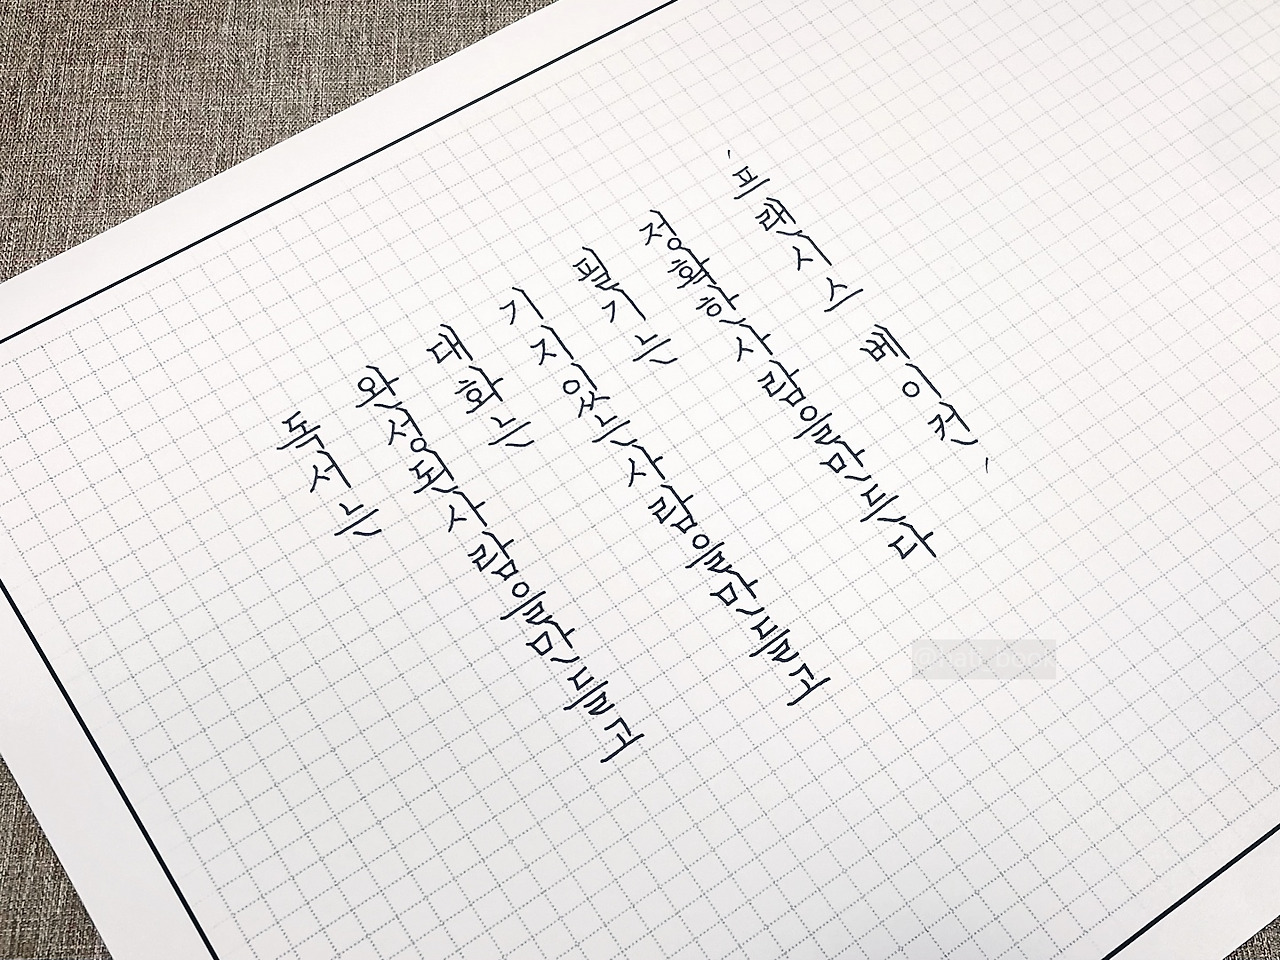 독서는
완성된사람을만들고
대화는
기지있는사람을만들고
필기는
정확한사람을만든다
'프랜시스 베이컨'